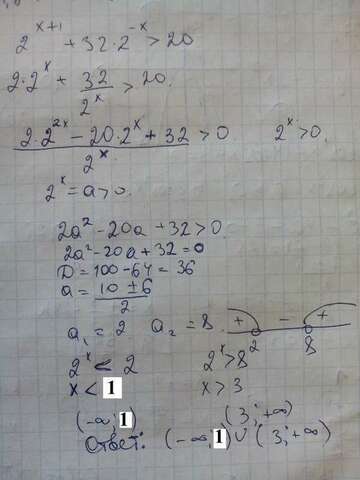 2^(x+1) + 32·2^(-x) > 20
2·2^x + 32/2^x > 20.
(2·2^(2x) - 20·2^x + 32)/2^x > 0. 2^x > 0.
2^x = a > 0.
2a² - 20a + 32 > 0.
2a² - 20a + 32 = 0
D = 100 - 64 = 36
a = (10 ± 6)/2
a₁ = 2 a₂ = 8. + - + 2 8
2^x < 2 2^x > 8
x < 1 x > 3
(-∞; 1) (3; +∞)
Ответ: (-∞; 1) ∪ (3; +∞)